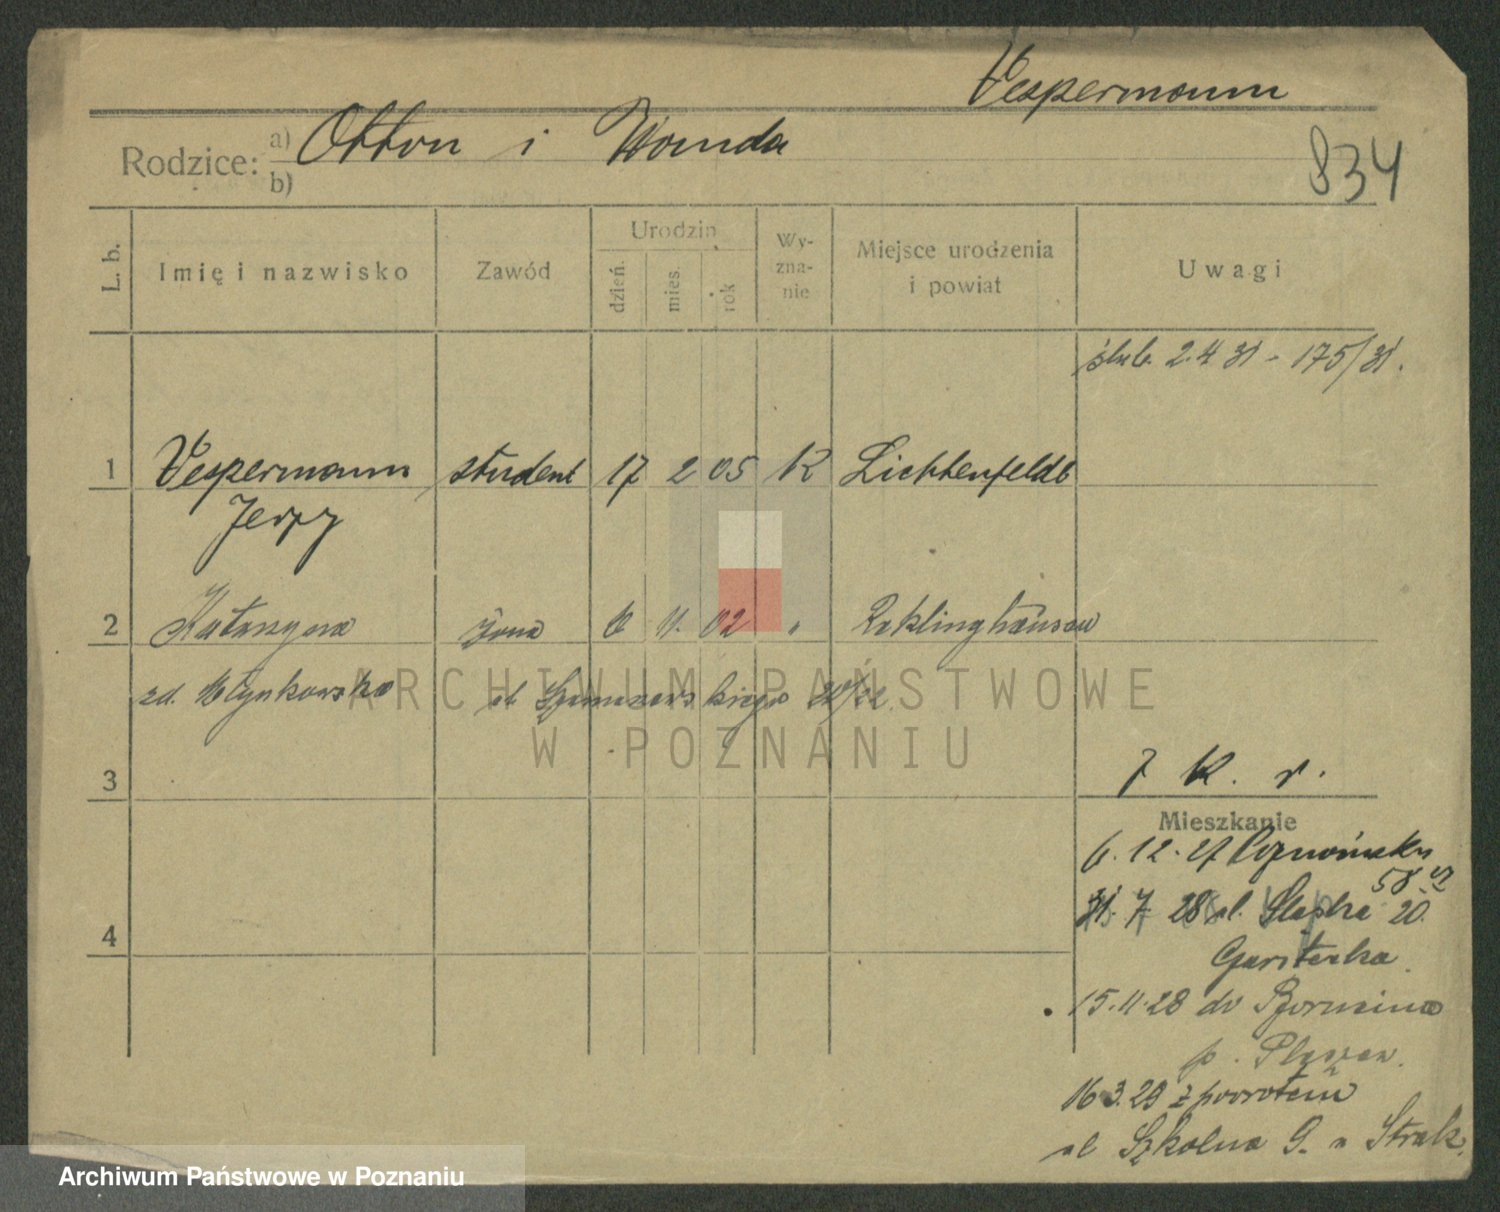 Vespermann
Rodzice: a) Otton i Wanda
b)
834
L. b.
Imię i nazwisko
Zawód
Urodzin
dzień.
mies.
rok
Wy-
zna-
nie
Miejsce urodzenia
i powiat
Uwagi
ślub. 2.4 31 - 175/31.
1 Vespermann student 17 2 05 K Lichtenfelde
Jerzy
2 Katarzyna żona 6 11. 02 " Reklinghausen
zd. Młynkowska
ARCHIWUM PAŃSTWOWE
W POZNANIU
3
7 K. r.
Mieszkanie
6.12.27
58
31.7 28 ul. Śląska 20.
4
15.11.28 do
p.
16.3.29 z powrotem
ul Szkolna 9.
Archiwum Państwowe w Poznaniu